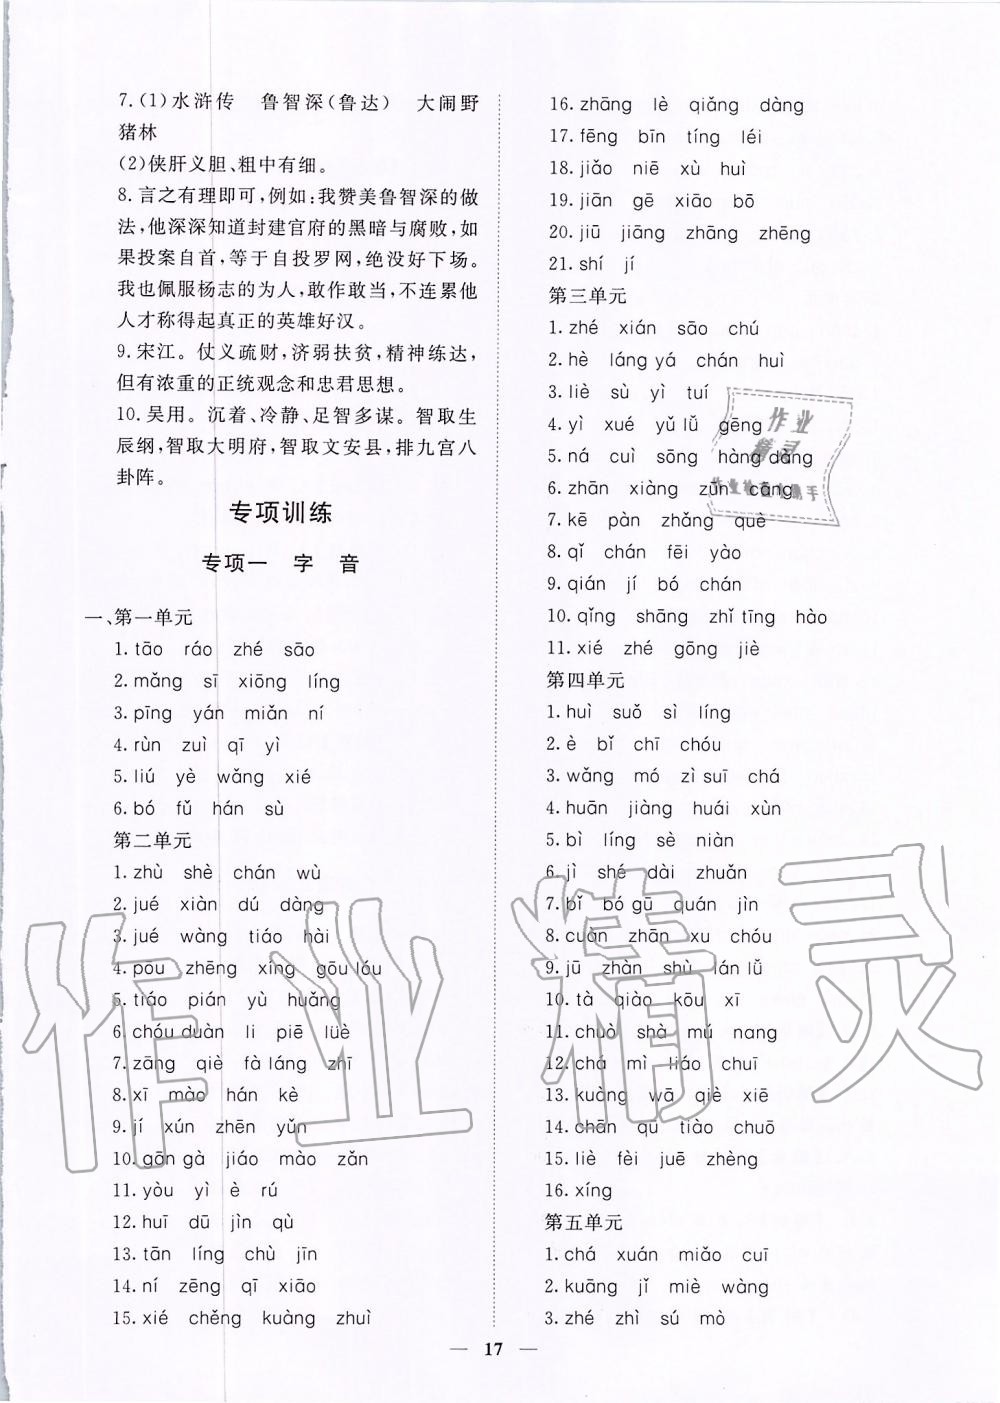 7.(1)水浒传　鲁智深(鲁达)　大闹野
猪林
(2)侠肝义胆、粗中有细。
8.言之有理即可,例如:我赞美鲁智深的做
法,他深深知道封建官府的黑暗与腐败,如
果投案自首,等于自投罗网,绝没好下场。
我也佩服杨志的为人,敢作敢当,不连累他
人才称得起真正的英雄好汉。
9.宋江。仗义疏财,济弱扶贫,精神练达,
但有浓重的正统观念和忠君思想。
10.吴用。沉着、冷静、足智多谋。智取生
辰纲,智取大明府,智取文安县,排九宫八
卦阵。
专项训练
专项一　字　音
一、第一单元
1.tāo ráo zhé sāo
2.mǎng sī xiōng líng
3.pīng yán miǎn ní
4.rùn zuì qī yì
5.liú yè wǎng xié
6.bó fǔ hán sù
第二单元
1.zhù shè chán wù
2.jué xiàn dú dàng
3.jué wàng tiáo hài
4.pōu zhēng xíng gōu lóu
5.tiáo pián yù huǎng
6.chóu duàn li piē lüè
7.zāng qiè fà láng zhī
8.xī mào hán kè
9.jí xún zhēn yǔn
10.gān gà jiáo mào zǎn
11.yòu yì è rú
12.huī dū jìn qù
13.tān líng chù jīn
14.ní zēng qī xiāo
15.xié chěng kuàng zhuì
16.zhāng lè qiǎng dàng
17.fēng bīn tíng léi
18.jiǎo niē xù huì
19.jiān gē xiāo bō
20.jiū jiāng zhāng zhēng
21.shí jí
第三单元
1.zhé xián sāo chú
2.hè láng yá chán huì
3.liè sù yì tuí
4.yì xué yǔ lǔ gēng
5.ná cuì sōng hàng dāng
6.zhān xiàng zūn cāng
7.kē pàn zhǎng què
8.qǐ chán fēi yào
9.qián jí bó chán
10.qǐng shāng zhǐ tīng hào
11.xié zhé gōng jiè
第四单元
1.huì suǒ sì líng
2.è bǐ chī chóu
3.wǎng mó zì suī chá
4.huān jiàng huái xùn
5.bì líng sè niàn
6.jì shé dài zhuǎn
7.bǐ bó gū quán jìn
8.cuān zhān xu chóu
9.jū zhàn shù lán lǚ
10.tà qiào kōu xī
11.chuò shà mú nang
12.chá mì liáo chuī
13.kuàng wā qiè xiē
14.chān qū tiào chuō
15.liè fèi juē zhèng
16.xíng
第五单元
1.chá xuán miǎo cuī
2.kuāng jǐ miè wàng
3.zhé zhì sú mò
— 17 —
作业精灵
作业
精灵